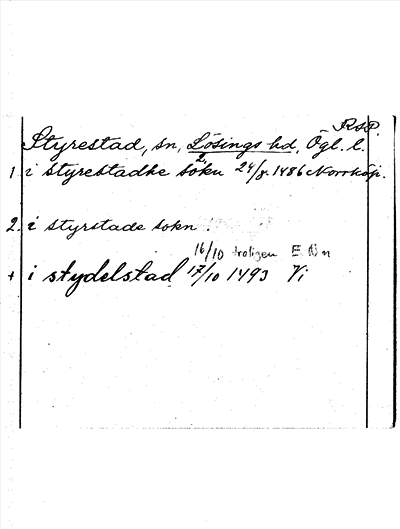 R.S.P.
Styrestad, sn, Lösings hd, Ögl. l.
2,
1 i styrestadhe sokn 24/8. 1486 Norrköp.
2. i styrstade sokn.
16/10 troligen E. N-n
+ i stydelstad 17/10 1493 Vi